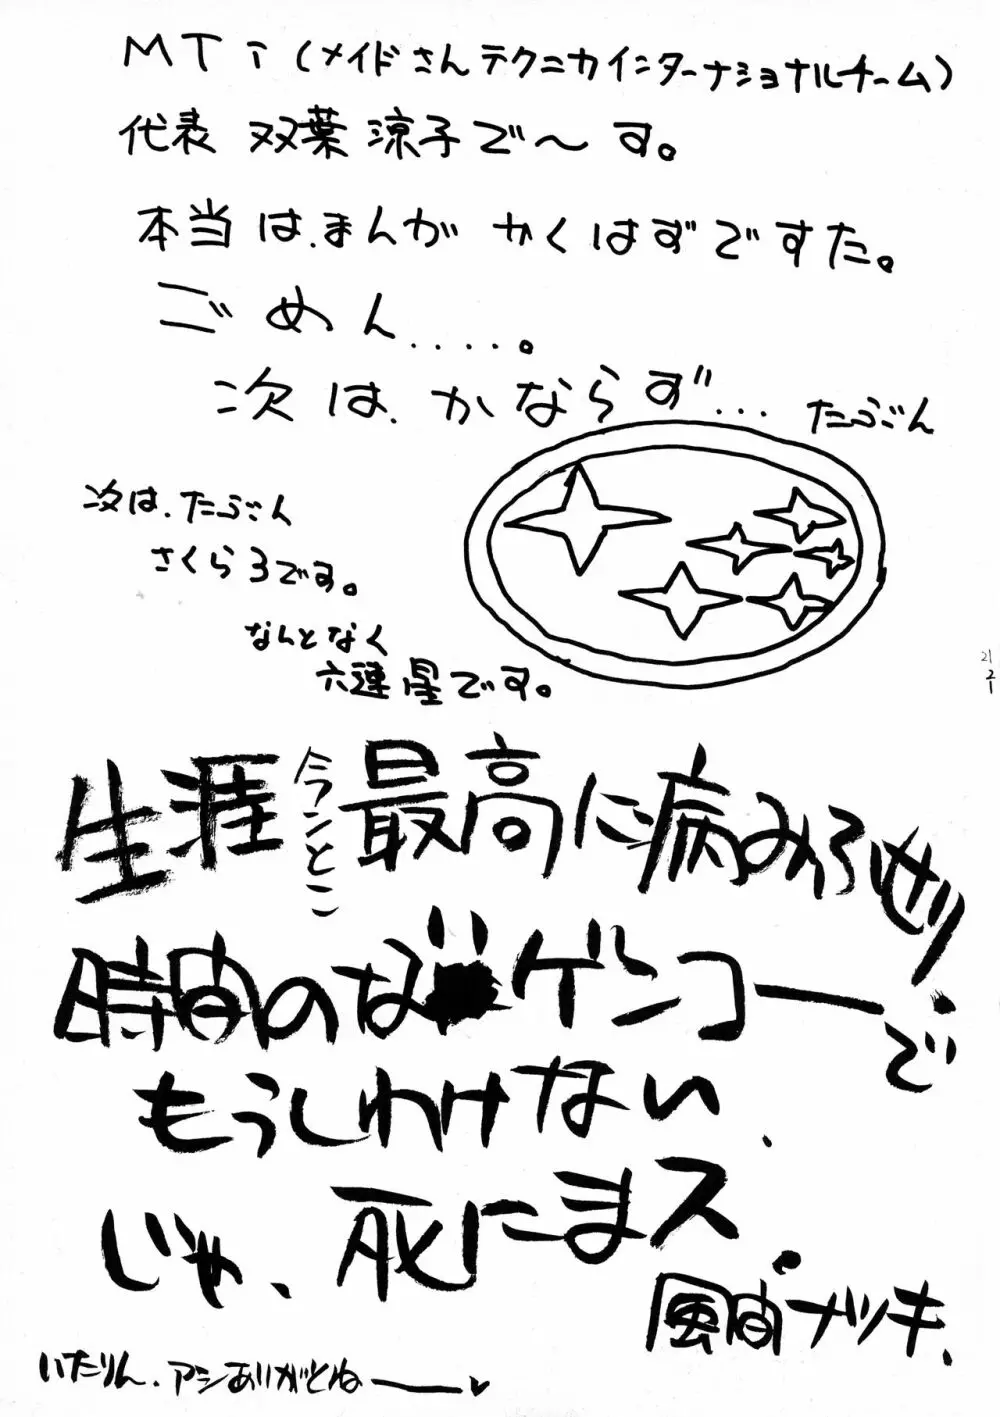 MTi（メイドさんテクニカインターナショナルチーム）
代表 双葉 涼子で〜す。
本当は、まんが かくはずですた。
ごめん....。
次は、かならず... たぶん
次は、たぶん
さくら3です。
なんとなく
六連星です。
生涯今ンとこ最高に病みろせり
時間のな ゲンコーで
もうしわけない、
じゃ、死にまス。
風間ナツキ、
いたりん、アシありがとねー